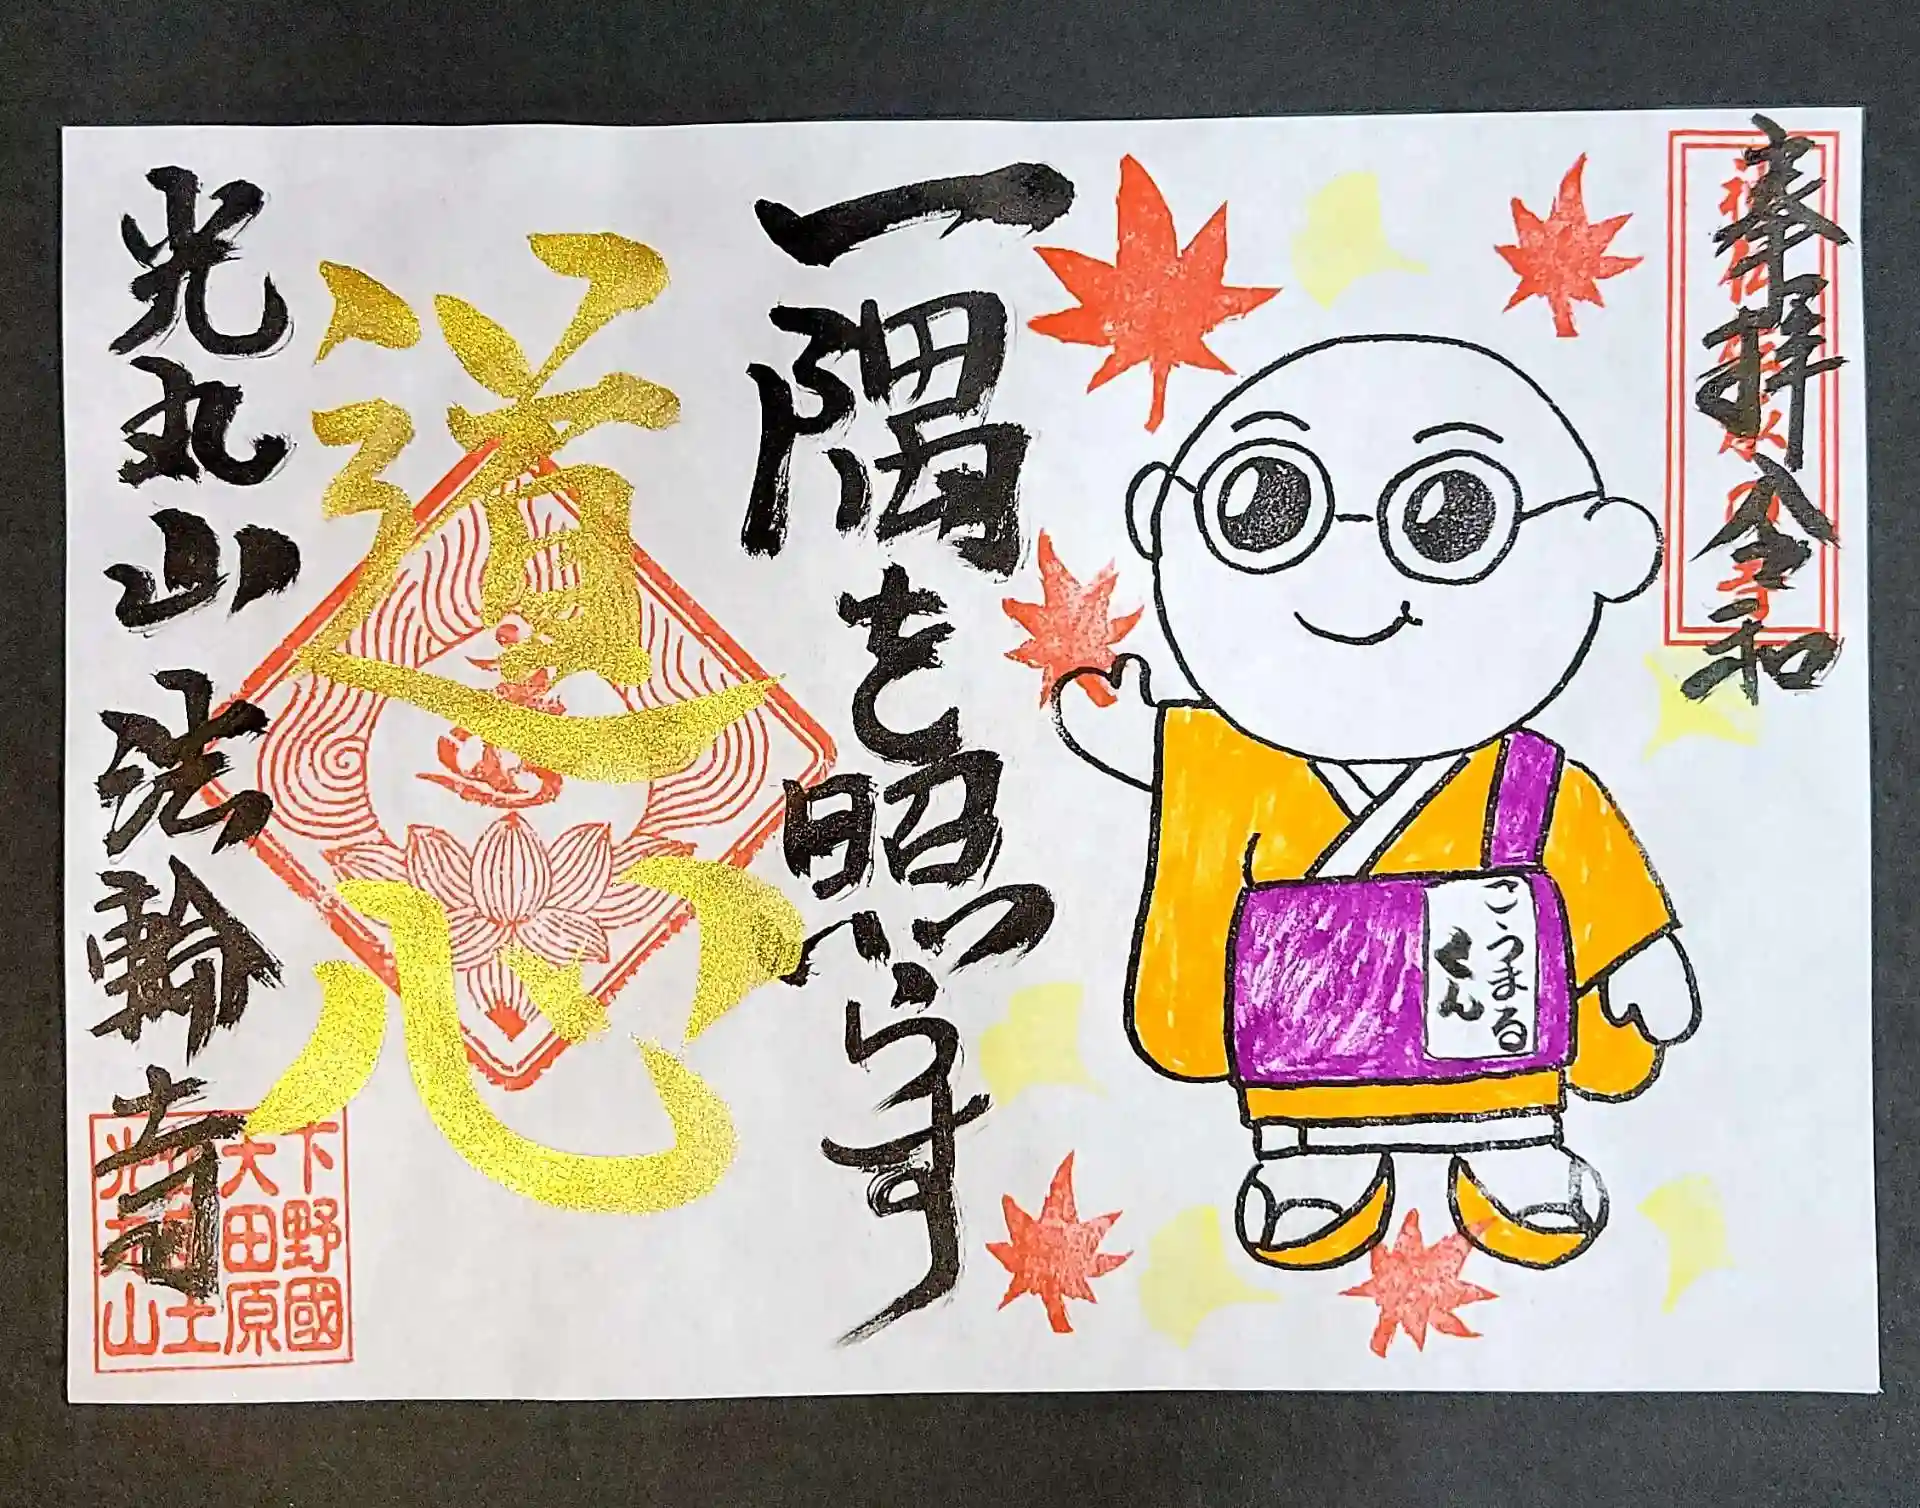 奉拝 令和
こうまる
くん
一隅を照らす
道心
光丸山 法輪寺
下野國
大田原